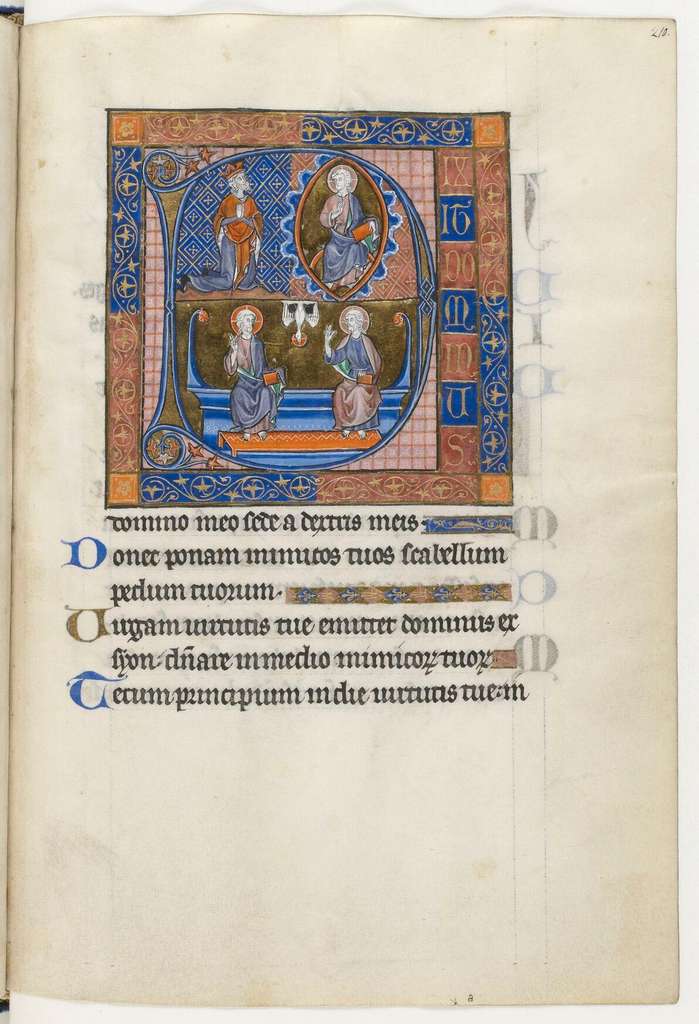 210.
D
IX
IT
DO
M
IN
U
S
domino meo sede a dextris meis.
Donec ponam inimicos tuos scabellum
pedum tuorum.
Uirgam uirtutis tue emittet dominus ex
syon. dñare in medio inimicoꝝ tuoꝝ.
Tecum principium in die uirtutis tue: in
a